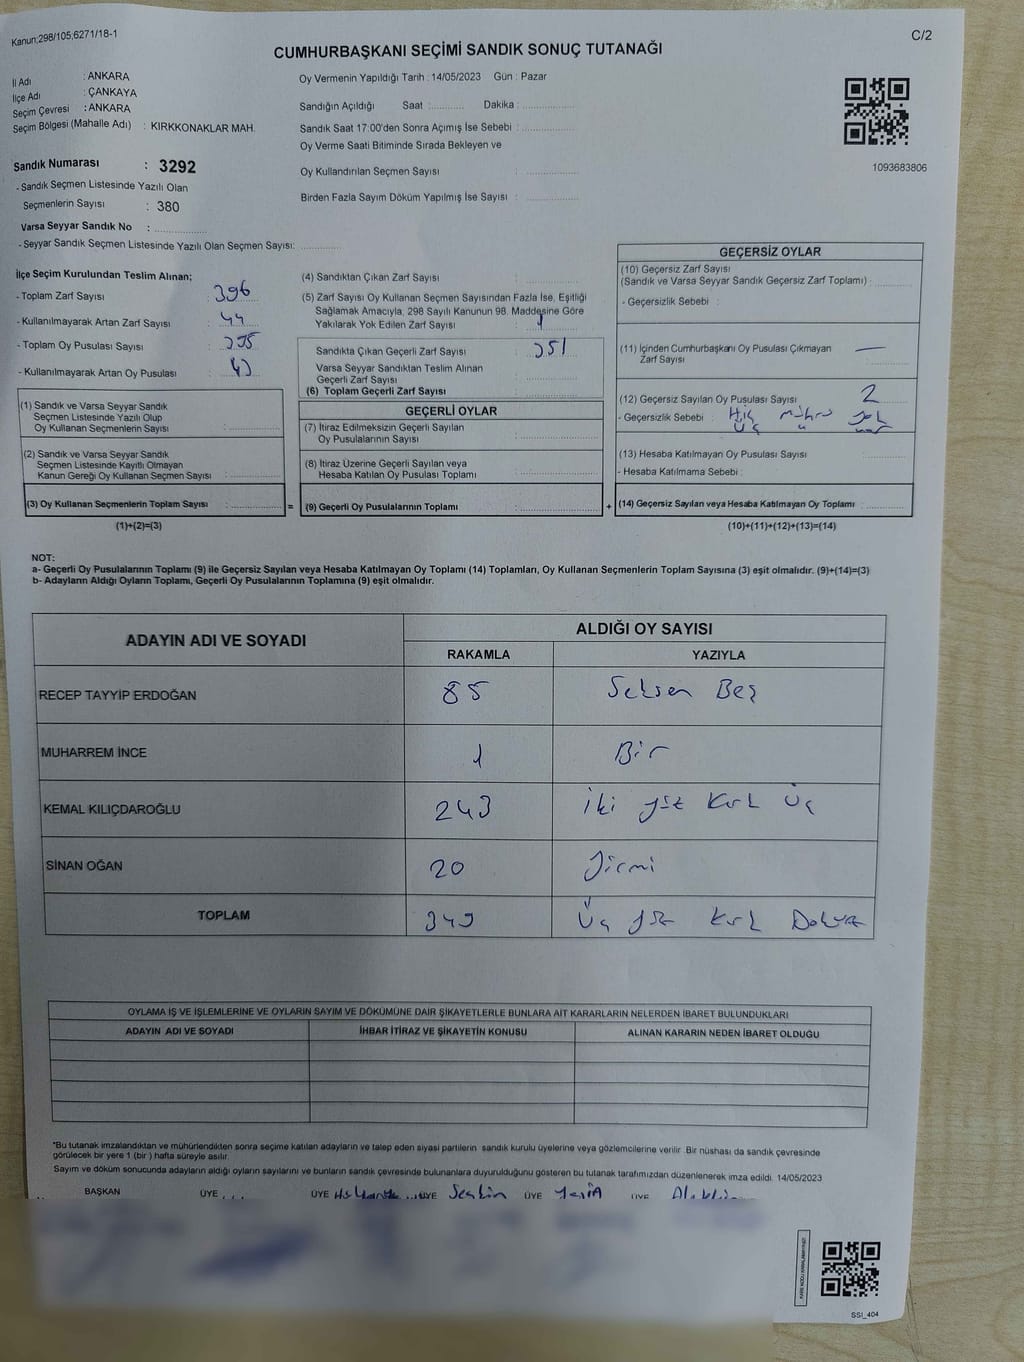 Kanun;298/105;6271/18-1
C/2
CUMHURBAŞKANI SEÇİMİ SANDIK SONUÇ TUTANAĞI
İl Adı : ANKARA
İlçe Adı : ÇANKAYA
Seçim Çevresi : ANKARA
Seçim Bölgesi (Mahalle Adı) : KIRKKONAKLAR MAH.
Sandık Numarası : 3292
- Sandık Seçmen Listesinde Yazılı Olan
Seçmenlerin Sayısı : 380
Varsa Seyyar Sandık No :
- Seyyar Sandık Seçmen Listesinde Yazılı Olan Seçmen Sayısı:
Oy Vermenin Yapıldığı Tarih : 14/05/2023 Gün : Pazar
Sandığın Açıldığı Saat : Dakika :
Sandık Saat 17:00'den Sonra Açımış İse Sebebi :
Oy Verme Saati Bitiminde Sırada Bekleyen ve
Oy Kullandırılan Seçmen Sayısı :
Birden Fazla Sayım Döküm Yapılmış İse Sayısı :
1093683806
İlçe Seçim Kurulundan Teslim Alınan;
- Toplam Zarf Sayısı : 396
- Kullanılmayarak Artan Zarf Sayısı : 44
- Toplam Oy Pusulası Sayısı :
- Kullanılmayarak Artan Oy Pusulası :
(1) Sandık ve Varsa Seyyar Sandık
Seçmen Listesinde Yazılı Olup
Oy Kullanan Seçmenlerin Sayısı :
(2) Sandık ve Varsa Seyyar Sandık
Seçmen Listesinde Kayıtlı Olmayan
Kanun Gereği Oy Kullanan Seçmen Sayısı :
(3) Oy Kullanan Seçmenlerin Toplam Sayısı :
(1)+(2)=(3)
=
(4) Sandıktan Çıkan Zarf Sayısı :
(5) Zarf Sayısı Oy Kullanan Seçmen Sayısından Fazla İse, Eşitliği
Sağlamak Amacıyla, 298 Sayılı Kanunun 98. Maddesine Göre
Yakılarak Yok Edilen Zarf Sayısı : 1
Sandıkta Çıkan Geçerli Zarf Sayısı : 351
Varsa Seyyar Sandıktan Teslim Alınan
Geçerli Zarf Sayısı :
(6) Toplam Geçerli Zarf Sayısı :
GEÇERLİ OYLAR
(7) İtiraz Edilmeksizin Geçerli Sayılan
Oy Pusulalarının Sayısı :
(8) İtiraz Üzerine Geçerli Sayılan veya
Hesaba Katılan Oy Pusulası Toplamı :
(9) Geçerli Oy Pusulalarının Toplamı :
+
GEÇERSİZ OYLAR
(10) Geçersiz Zarf Sayısı
(Sandık ve Varsa Seyyar Sandık Geçersiz Zarf Toplamı) :
- Geçersizlik Sebebi :
(11) İçinden Cumhurbaşkanı Oy Pusulası Çıkmayan : —
Zarf Sayısı
(12) Geçersiz Sayılan Oy Pusulası Sayısı : 2
- Geçersizlik Sebebi :
(13) Hesaba Katılmayan Oy Pusulası Sayısı :
- Hesaba Katılmama Sebebi :
(14) Geçersiz Sayılan veya Hesaba Katılmayan Oy Toplamı :
(10)+(11)+(12)+(13)=(14)
NOT:
a- Geçerli Oy Pusulalarının Toplamı (9) ile Geçersiz Sayılan veya Hesaba Katılmayan Oy Toplamı (14) Toplamları, Oy Kullanan Seçmenlerin Toplam Sayısına (3) eşit olmalıdır. (9)+(14)=(3)
b- Adayların Aldığı Oyların Toplamı, Geçerli Oy Pusulalarının Toplamına (9) eşit olmalıdır.
ADAYIN ADI VE SOYADI
ALDIĞI OY SAYISI
RAKAMLA YAZIYLA
RECEP TAYYİP ERDOĞAN 85 Seksen Beş
MUHARREM İNCE 1 Bir
KEMAL KILIÇDAROĞLU 243 İki yüz Kırk Üç
SİNAN OĞAN 20 Yirmi
TOPLAM 349 Üç yüz Kırk Dokuz
OYLAMA İŞ VE İŞLEMLERİNE VE OYLARIN SAYIM VE DÖKÜMÜNE DAİR ŞİKAYETLERLE BUNLARA AİT KARARLARIN NELERDEN İBARET BULUNDUKLARI
ADAYIN ADI VE SOYADI İHBAR İTİRAZ VE ŞİKAYETİN KONUSU ALINAN KARARIN NEDEN İBARET OLDUĞU
*Bu tutanak imzalandıktan ve mühürlendikten sonra seçime katılan adayların ve talep eden siyasi partilerin sandık kurulu üyelerine veya gözlemcilerine verilir. Bir nüshası da sandık çevresinde
görülecek bir yere 1 (bir) hafta süreyle asılır.
Sayım ve döküm sonucunda adayların aldığı oyların sayılarını ve bunların sandık çevresinde bulunanlara duyurulduğunu gösteren bu tutanak tarafımızdan düzenlenerek imza edildi. 14/05/2023
BAŞKAN ÜYE ÜYE ÜYE ÜYE ÜYE
SSI_404